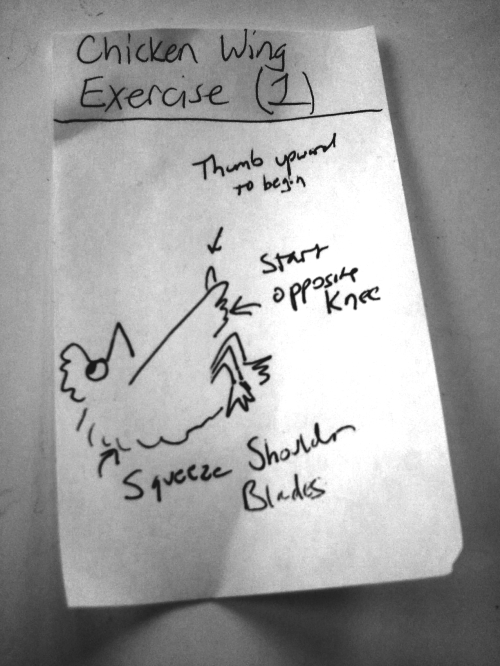 Chicken Wing
Exercise (1)
Thumb upward
to begin
Start
opposite
Knee
Squeeze Shoulder
Blades